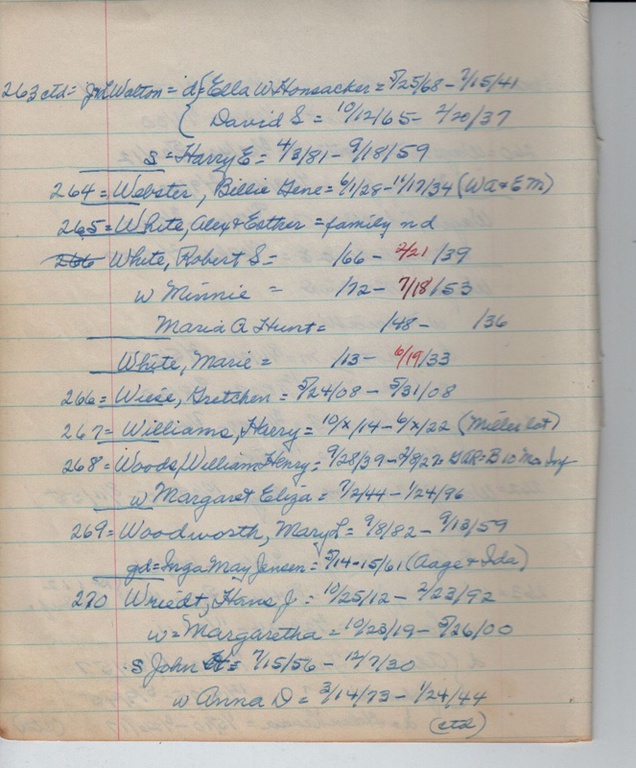 263 ctd = Jno Walton = d { Ella W Honsacker = 5/25/68 - 7/15/41
{ David S = 10/12/65 - 2/20/37
s = Harry E = 4/3/81 - 9/18/59
264 = Webster, Billie Gene = 6/1/28 - 11/17/34 (Wa + E M)
265 = White, Aley + Esther = family nd
266 White, Robert S = /66 - 2/21/39
w Minnie = /72 - 7/18/53
Maria A Hunt = /48 - /36
White, Marie = /13 - 6/19/33
266 = Wiese, Gretchen = 5/24/08 - 5/31/08
267 = Williams, Harry = 10/x/14 - 6/x/22 (Miller lot)
268 = Woods, William Henry = 9/28/39 - 2/8/27 = GAR = B 10 Mo Inf
w Margaret Eliza = 7/2/44 - 1/24/96
269 = Woodworth, Mary L = 9/8/82 - 9/13/59
gd = Inga May Jensen = 5/14-15/61 (Aage + Ida)
270 Wriedt, Hans J = 10/25/12 - 2/23/92
w = Margaretha = 10/23/19 - 5/26/00
s John = 7/15/56 - 12/7/30
w Anna D = 3/14/73 - 1/24/44
(ctd)